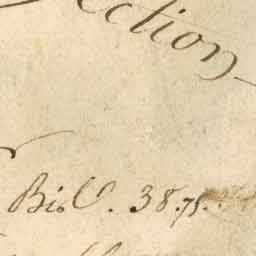 ection
Bibl. 38.75.